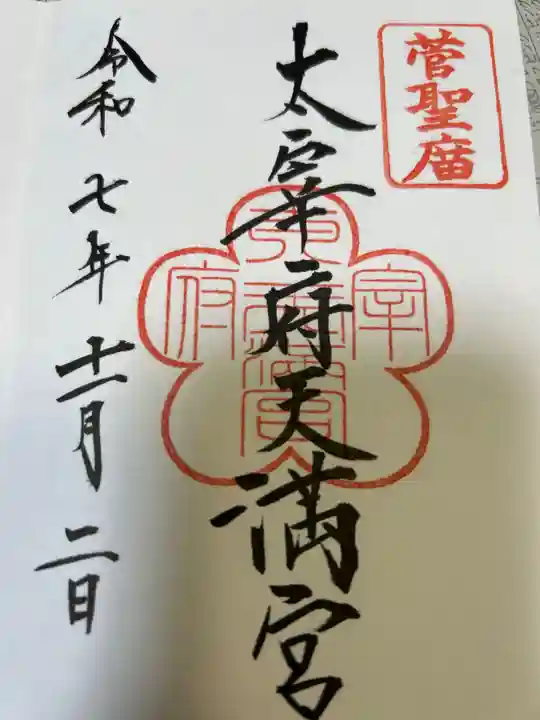 菅聖廟
太宰府天満宮
令和七年十一月二日